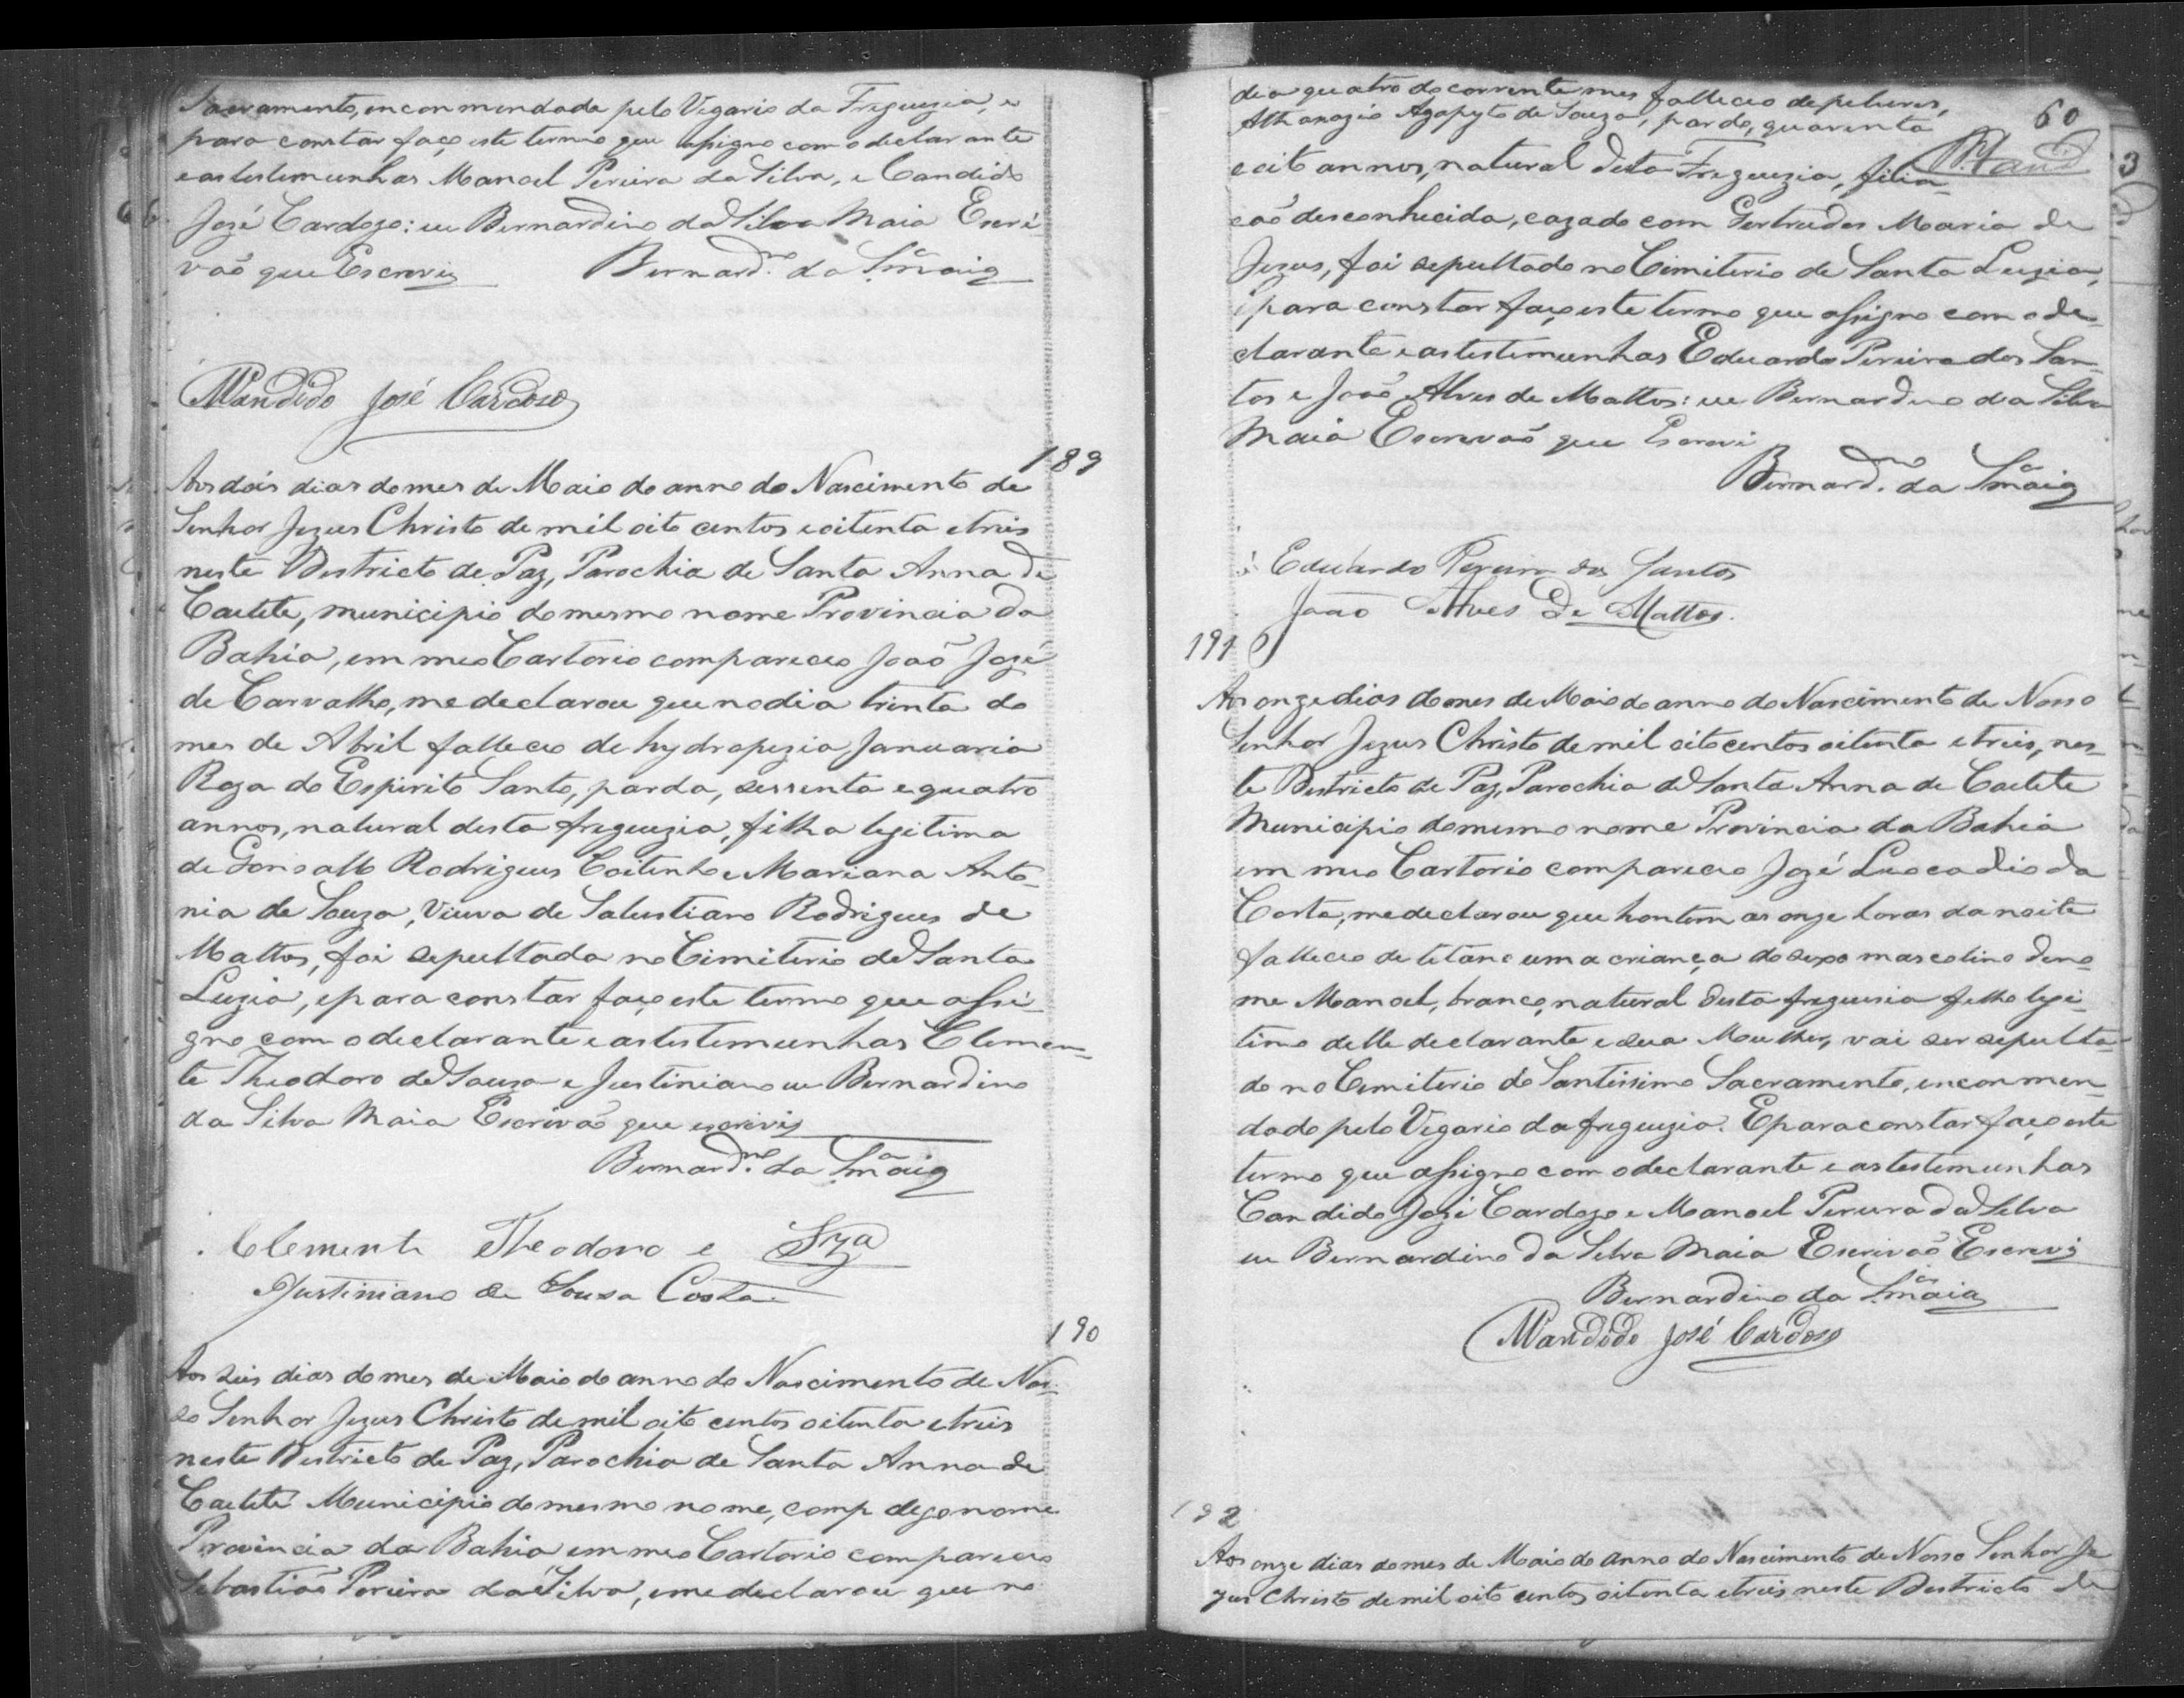 Sacramento, enconmendada pelo Vigario da Freguezia, e
para constar faço este termo que assigno com o declarante
e as testemunhas Manoel Pereira da Silva, e Candido
José Cardozo: eu Bernardino da Silva Maia Escri-
vaõ que Escrevi
Bernard.no da S.a Maia
Candido José Cardoso
189
Aos dois dias do mes de Maio do anno do Nascimento de
Senhor Jezus Christo de mil oito centos e oitenta e treis
neste Destricto de Paz, Parochia de Santa Anna de
Caetete, municipio do mesmo nome Provincia da
Bahia, em meo Cartorio compareceo Joaõ José
de Carvalho, me declarou que no dia trinta do
mes de Abril falleceo de hydropezia Januaria
Roza do Espirito Santo, parda, sessenta e quatro
annos, natural desta freguezia, filha legitima
de Gonsallo Rodrigues Coitinho e Mariana Anto-
nia de Souza, Viuva de Salustiano Rodrigues de
Mattos, foi sepultada no Cimiterio de Santa
Luzia, e para constar faço este termo que assi-
gno com o declarante e as testemunhas Clemen-
te Theodoro de Souza e Justiniano eu Bernardino
da Silva Maia Escrivaõ que escrevi
Bernard.no da S.a Maia
Clemente Theodoro e Sza
Justiniano de Sousa Costa
190
Aos seis dias do mes de Maio do anno do Nascimento de Nos-
so Senhor Jezus Christo de mil oito centos oitenta e treis
neste Destricto de Paz, Parochia de Santa Anna de
Caetete Municipio do mesmo nome, comp digo nome
Provincia da Bahia em meo Cartorio compareceo
Sebastiaõ Pereira da Silva, e me declarou que no
60
dia quatro do corrente mes falleceo de
Athanazio Agapyto de Souza, pardo, quarenta
e oito annos, natural desta Freguezia, filia-
caõ desconhecida, cazado com Gertrudes Maria de
Jezus, foi sepultado no Cimiterio de Santa Luzia,
e para constar faço este termo que assigno com o de-
clarante e as testemunhas Eduardo Pereira dos San-
tos e Joaõ Alves de Mattos: eu Bernardino da Silva
Maia Escrevaõ que Escrevi
Bernard.no da S.a Maia
Eduardo Pereira dos Santos
João Alves De Mattos.
191
Aos onze dias do mes de Maio do anno do Nascimento de Nosso
Senhor Jezus Christo de mil oito centos oitenta e treis, nes-
te Destricto de Paz, Parochia de Santa Anna de Caetete
Municipio do mesmo nome Provincia da Bahia
em meo Cartorio compareceo José Leocadio da
Costa, me declarou que hontem as onze horas da noite
falleceo de tetano uma criança do sexo mascolino de no-
me Manoel, branco, natural desta freguesia filho legi-
timo delle declarante e sua Mulher, vai ser sepulta-
do no Cemiterio do Santissimo Sacramento, enconmen-
dado pelo Vigario da freguezia. E para constar faço este
termo que assigno com o declarante e as testemunhas
Candido José Cardozo e Manoel Pereira da Silva
eu Bernardino da Silva Maia Escrivaõ Escrevi
Bernardino da S.a Maia
Candido José Cardoso
192
Aos onze dias do mes de Maio do anno do Nascimento de Nosso Senhor Je
zus Christo de mil oito centos oitenta e treis neste Destricto de